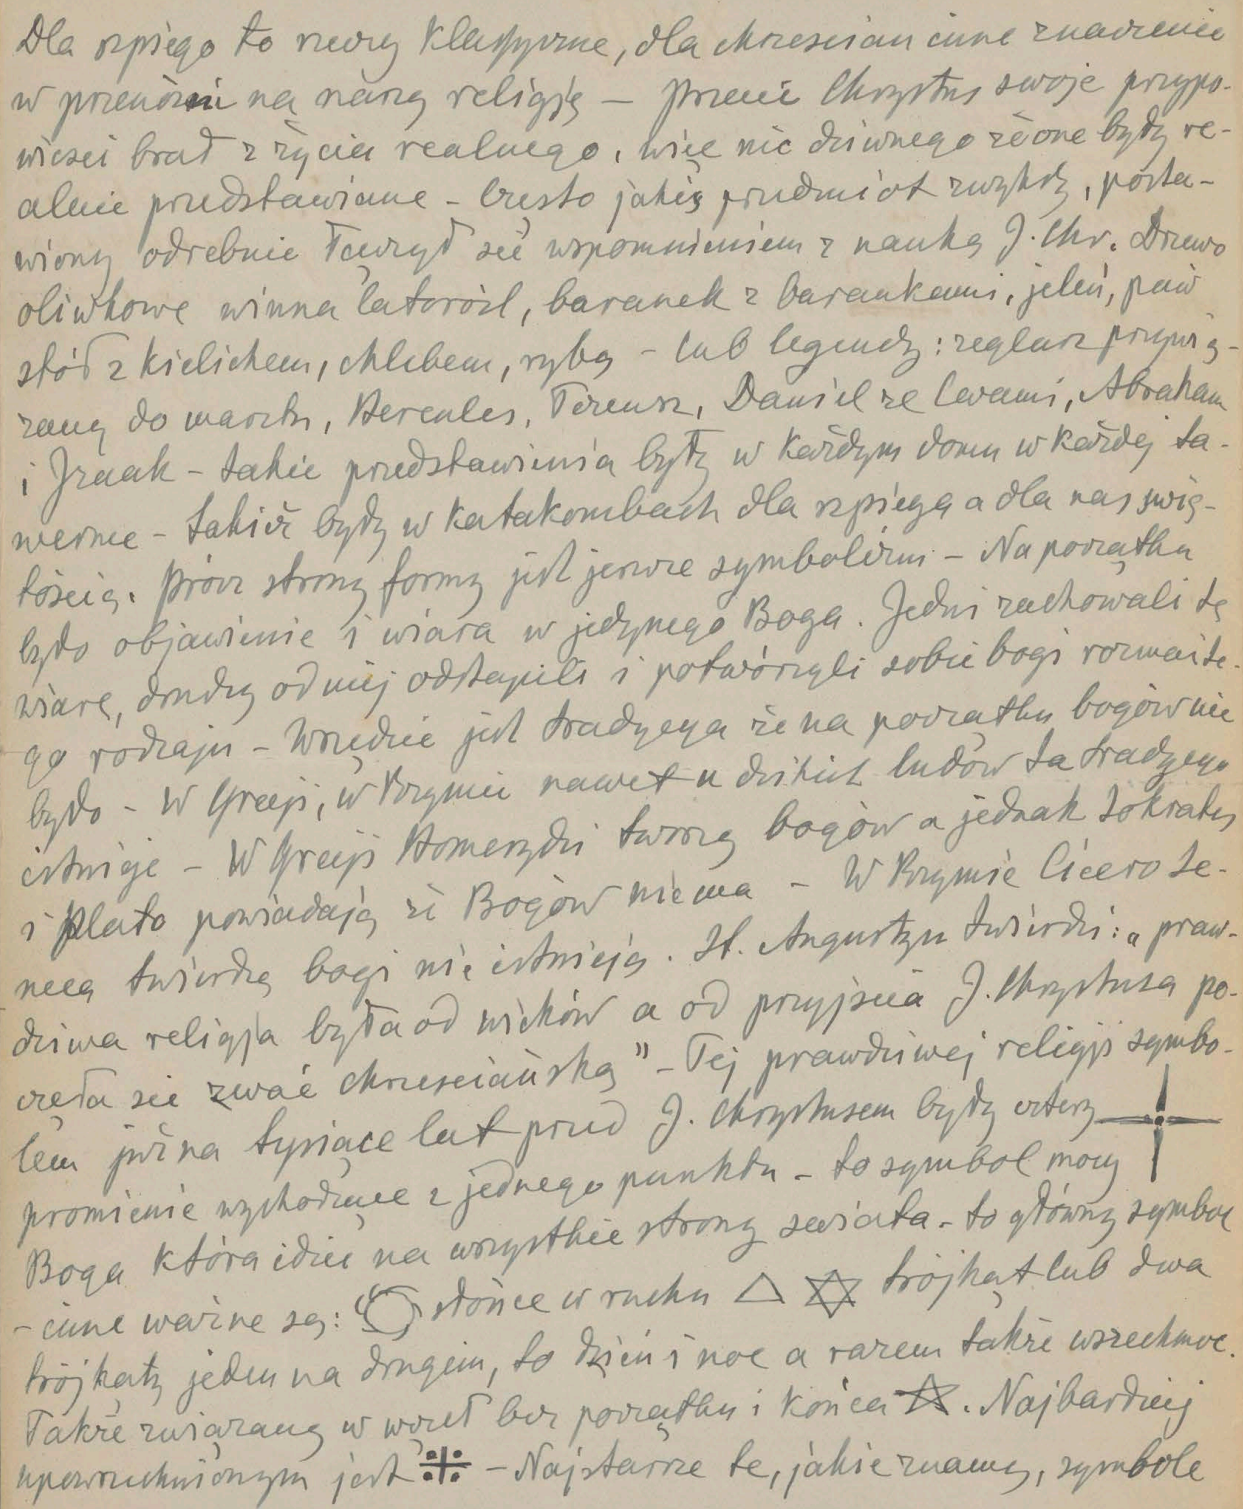 Dla szpiega to rzeczy klasyczne, dla chrześcian inne znaczenie
w przenośni na naszą religję — Przecie Chrystus swoje przypo-
wieści brał z życia realnego, więc nic dziwnego że one były re-
alnie przedstawiane – Często jakiś przedmiot zwykły, posta-
wiony odrębnie łączył się wspomnieniem z nauką J. Chr. Drzewo
oliwkowe winna latorośl, baranek z barankami, jeleń, paw
stół z kielichem, chlebem, rybą – lub legendy: żeglarz przywią-
zany do masztu, Hercules, Tezeusz, Daniel ze lwami, Abraham
i Izaak – takie przedstawienia były w każdym domu w każdej ta-
wernie – takież były w katakombach dla szpiega a dla nas świę-
tością. Prócz strony formy jest jeszcze symbolizm – Na początku
było objawienie i wiara w jedynego Boga. Jedni zachowali tę
wiarę, drudzy od niej odstąpili i potwórzyli sobie bogi rozmaite-
go rodzaju – Wszędzie jest tradycya że na początku bogów nie
było – W Grecji, w Rzymie nawet u dzikich ludów ta tradycya
istnieje – W Grecji Homerydzi tworzą bogów a jednak Sokrates
i Plato powiadają że Bogów niema – W Rzymie Cicero Se-
neca twierdzą bogi nie istnieją. St. Augustyn twierdzi: „praw-
dziwa religja była od wieków a od przyjścia J. Chrystusa po-
częła się zwać chrześciańską" – Tej prawdziwej religji symbo-
lem już na tysiące lat przed J. Chrystusem były cztery
promienie wychodzące z jednego punktu – to symbol mocy
Boga która idzie na wszystkie strony świata – to główny symbol
– inne ważne są: słońce w ruchu △ ✡ trójkąt lub dwa
trójkąty jeden na drugim, to dzień i noc a razem także wszechmoc.
Także związany w węzeł bez początku i końca ☆. Najbardziej
upowszechnionym jest ※ – Najstarsze te, jakie znamy, symbole